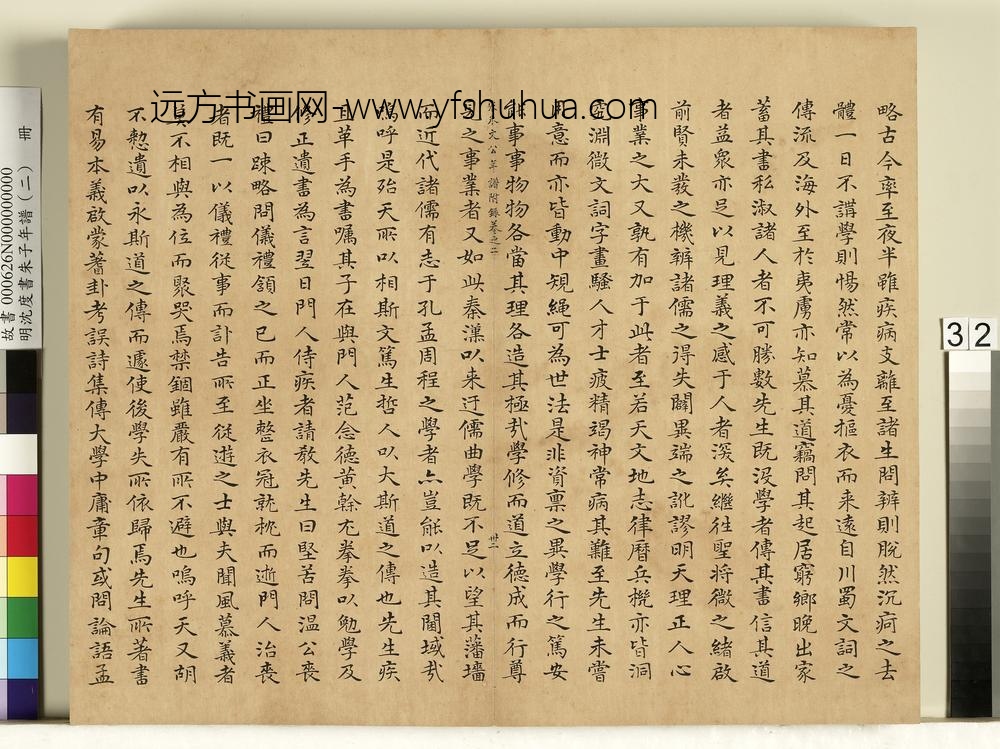 略古今率至夜半雖疾病支離至諸生問辨則脫然沉痾之去
體一日不講學則惕然常以為憂摳衣而来遠自川蜀文詞之
傳流及海外至於夷虜亦知慕其道竊問其起居窮鄉晚出家
蓄其書私淑諸人者不可勝數先生既没學者傳其書信其道
者益衆亦足以見理義之感于人者深矣繼往聖将微之緒啟
前賢未發之機辨諸儒之得失闢異端之訛謬明天理正人心
事業之大又孰有加于此者至若天文地志律曆兵機亦皆洞
究淵微文詞字畫騷人才士疲精竭神常病其難至先生未嘗
用意而亦皆動中規繩可為世法是非資禀之異學行之篤安
能事事物物各當其理各造其極㢤學修而道立德成而行尊
朱文公年譜附錄卷之二
卅二
見之事業者又如此秦漢以来迂儒曲學既不足以望其藩墻
而近代諸儒有志于孔孟周程之學者亦豈能以造其閫域㢤
嗚呼是殆天所以相斯文篤生哲人以大斯道之傳也先生疾
且革手為書囑其子在與門人范念德黄榦尤拳拳以勉學及
修正遺書為言翌日門人侍疾者請教先生曰堅苦問温公喪
禮曰疎略問儀禮頷之已而正坐整衣冠就枕而逝門人治喪
者既一以儀禮從事而訃告所至從遊之士與夫聞風慕義者
莫不相與為位而聚哭焉禁錮雖嚴有所不避也嗚呼天又胡
不憖遺以永斯道之傳而遽使後學失所依歸焉先生所著書
有易本義啟蒙蓍卦考誤詩集傳大學中庸章句或問論語孟
远方书画网-www.yfshuhua.com
32
故書000626N000000000 冊
明沈度書朱子年譜(二)